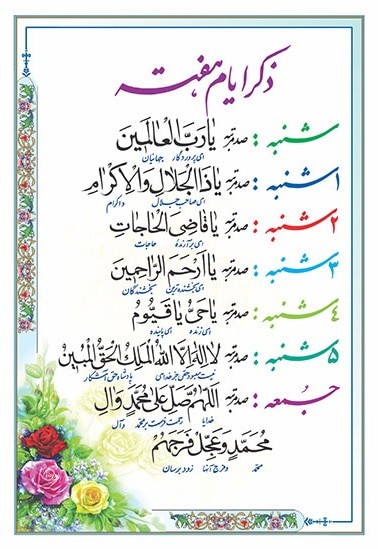 ذکر ایام هفته
شنبه : صد مرتبه یا رَبَّ الْعالَمین
ای پروردگار جهانیان
۱شنبه : صد مرتبه یا ذَا الْجَلالِ وَ الْاِکْرام
ای صاحب جلال و اکرام
۲شنبه : صد مرتبه یا قاضِیَ الْحاجات
ای برآرنده حاجات
۳شنبه : صد مرتبه یا اَرْحَمَ الرّاحِمین
ای بخشنده ترین بخشندگان
۴شنبه : صد مرتبه یا حَیُّ یا قَیُّومُ
ای زنده ای پاینده
۵شنبه : صد مرتبه لا اِلهَ اِلَّا اللهُ الْمَلِکُ الْحَقُّ الْمُبین
نیست معبودی جز خدای پادشاه حق آشکار
جمعه : صد مرتبه اَللّهُمَّ صَلِّ عَلی مُحَمَّدٍ وَ الِ
خدایا رحمت فرست بر محمد و آل
مُحَمَّدٍ وَ عَجِّلْ فَرَجَهُمْ
محمد و فرج آنها زود برسان